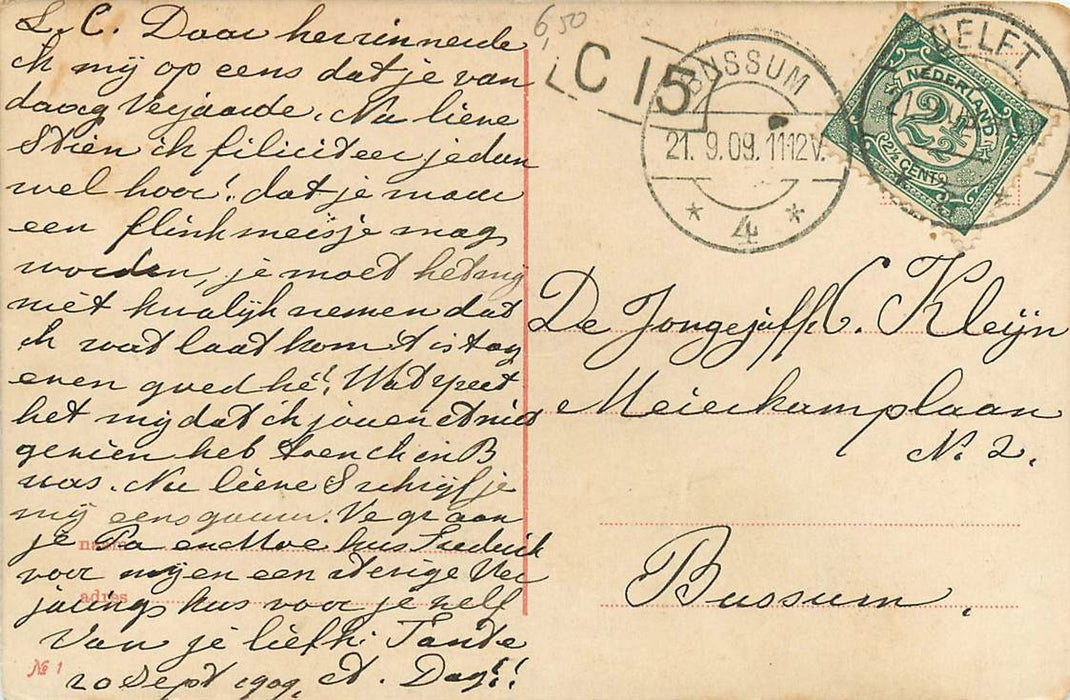 L. C. Daar herrinnerde
ik mij op eens dat je van
daag Verjaarde. Nu lieve
Stien ik filiciteer je dan
wel hoor! dat je maar
een flink meisje mag
worden, je moet het mij
niet kwalijk nemen dat
ik wat laat kom 't is tog
even goed hé! Wat speet
het mij dat ik jou en niet
gezien heb toen ik in B
was. Nu lieve S schrijf je
mij eens gauw. Ve gr aan
je Pa en Moe kus Frederik
voor mij en een stevige Ver
jaarings kus voor je zelf
Van je liefh: Tante
20 Sept 1909. Dag!!
naam
adres
№ 1
6,50
C 15
BUSSUM
21. 9.09. 11-12V.
4
DELFT
NEDERLAND
2½
(2½ CENT)
De Jongejuff. C. Kleijn
Meierkamplaan
N. 2.
Bussum.